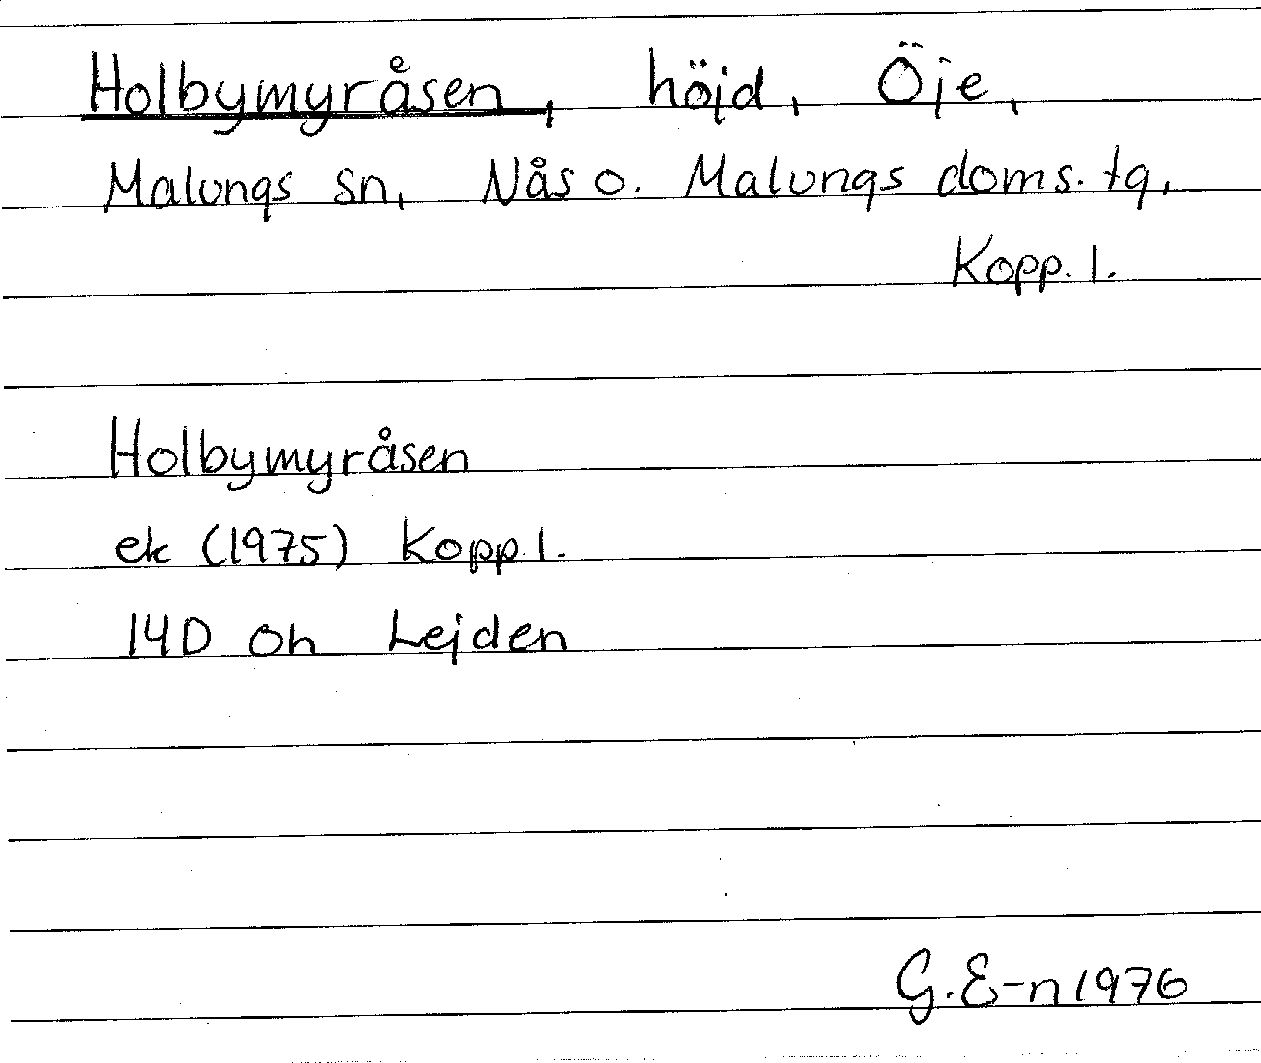 Holbymyråsen, höjd, Öje,
Malungs sn, Nås o. Malungs doms. tg,
Kopp. l.
Holbymyråsen
ek (1975) Kopp l.
14D 0h Lejden
G. E-n 1976